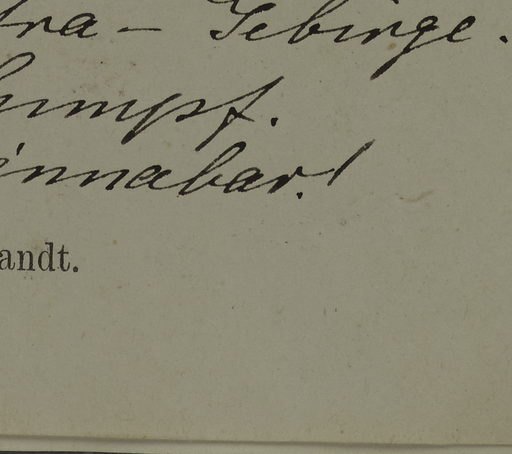 tra – Gebirge.
umpf.
innabar!
andt.